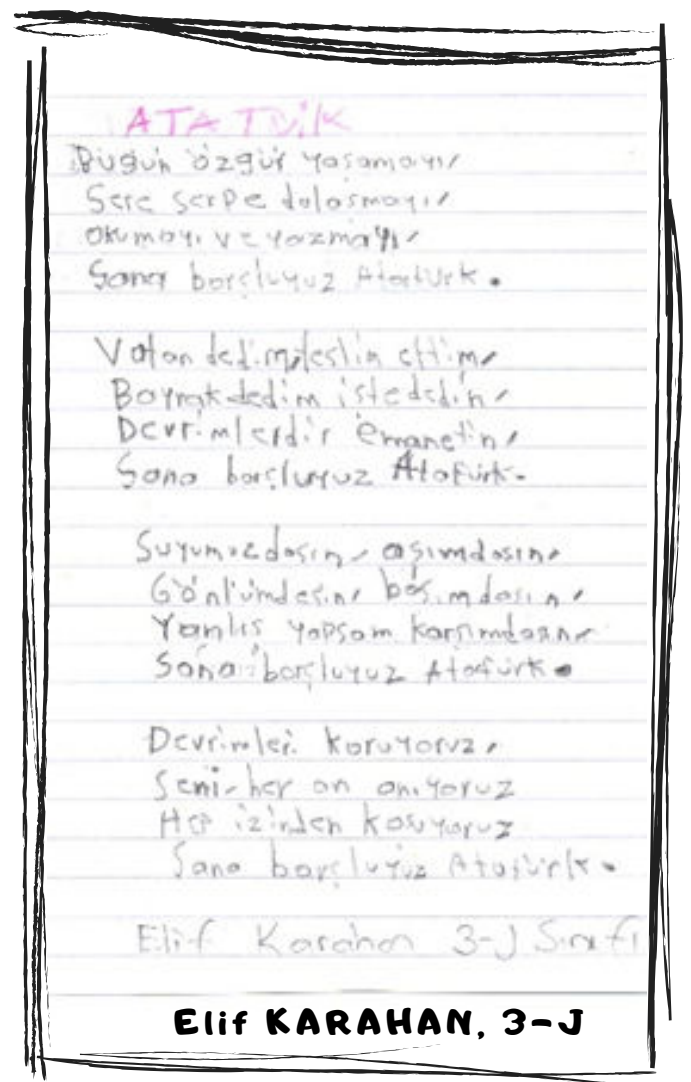 ATATÜRK
Bugün özgür yaşamayı,
Sere serpe dolaşmayı,
Okumayı ve yazmayı,
Sana borçluyuz Atatürk.
Vatan dedim
Bayrak dedim işte dedin,
Devrimlerdir emanetin,
Sana borçluyuz Atatürk.
Suyumuzdasın, aşımdasın,
Gönlümdesin, başımdasın,
Yanlış yapsam karşımdasın,
Sana borçluyuz Atatürk.
Devrimleri koruyoruz,
Seni her an anıyoruz
Hep izinden koşuyoruz
Sana borçluyuz Atatürk.
Elif Karahan 3-J Sınıfı
Elif KARAHAN, 3-J